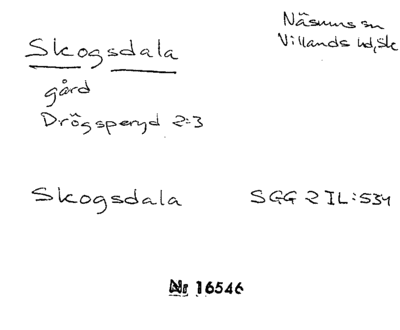 Skogsdala
Näsums sn
Villands hd, Sk
gård
Drögsperyd 2:3
Skogsdala
SGG 2 IL:534
Nr 16546